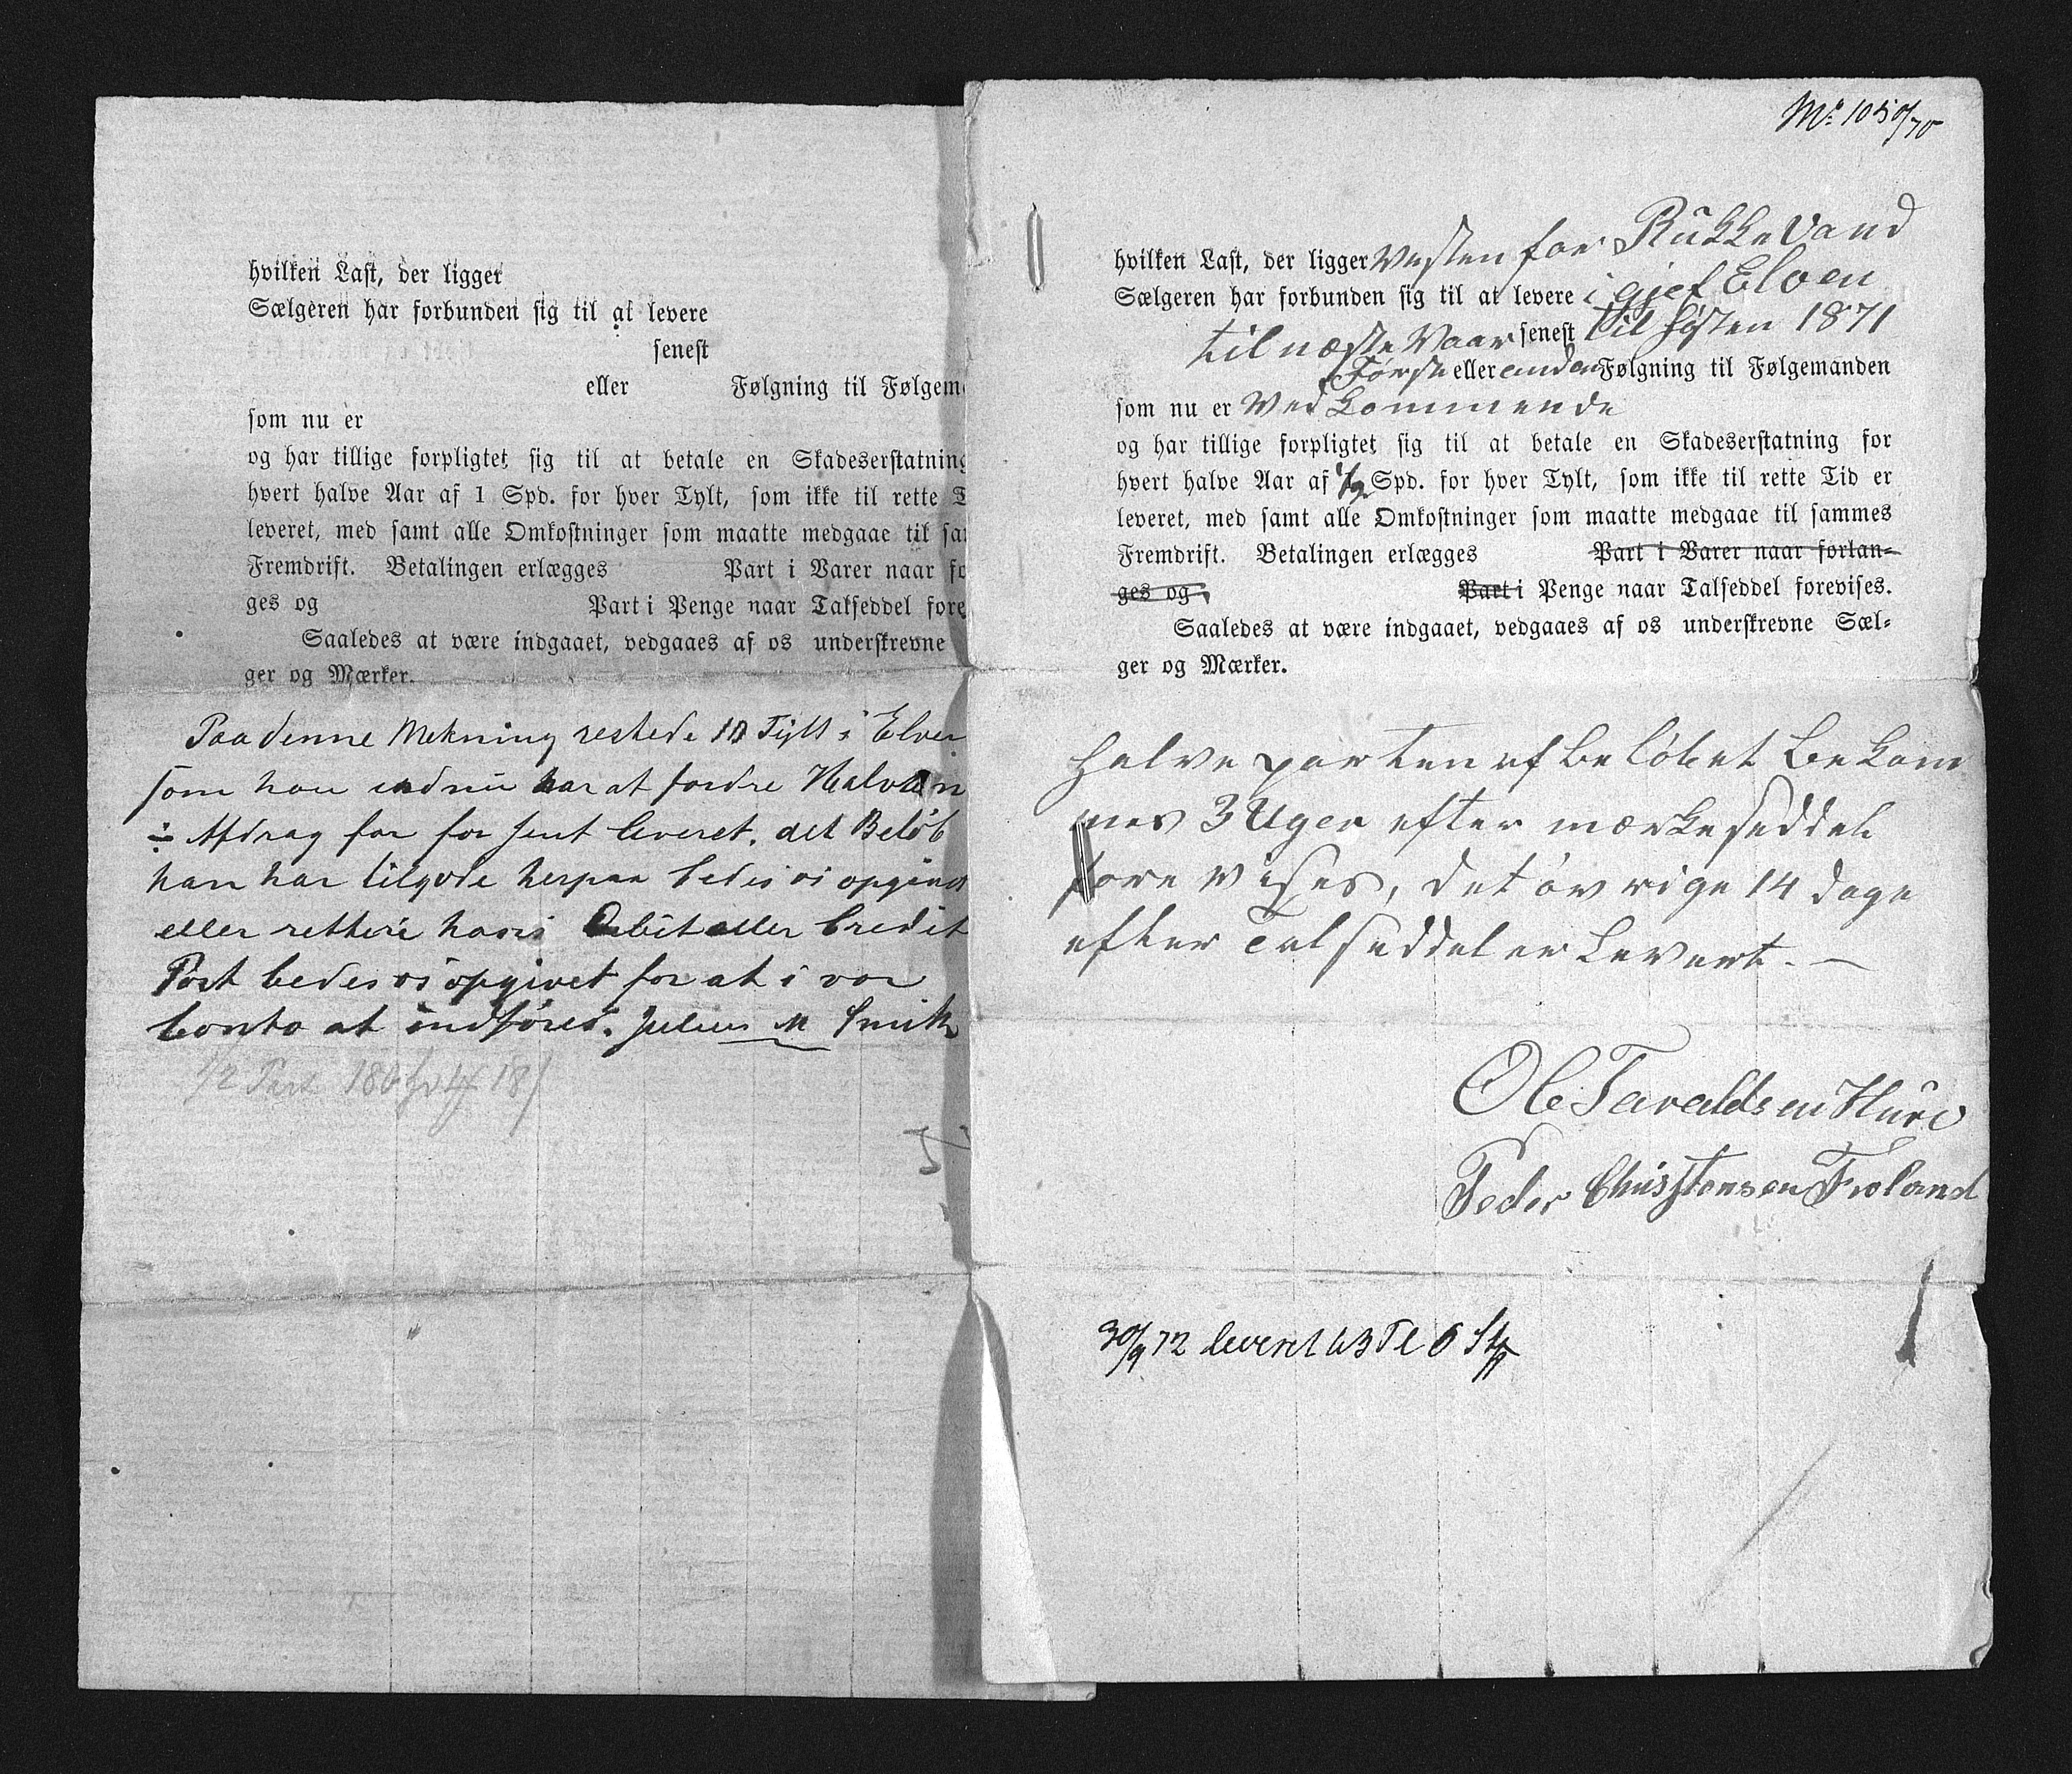 hvilken Last, der ligger
Sælgeren har forbunden sig til at levere
senest
eller Følgning til Følgem
som nu er
og har tillige forpligtet sig til at betale en Skadeserstatning
hvert halve Aar af 1 Spd. for hver Tylt, som ikke til rette T
leveret, med samt alle Omkostninger som maatte medgaae til sa
Fremdrift. Betalingen erlægges Part i Varer naar fo
ges og Part i Penge naar Talseddel fore
Saaledes at være indgaaet, vedgaaes af os underskrevne
ger og Mærker.
Paa denne Mekning restede 10 Tylt i Elven
som han endnu har at fordre Halv
÷ Afdrag for for sent leveret. det Beløb
han har tilgode herpaa bedes os opgivet
eller rettere hans Debit eller Credit
Post bedes os opgivet for at i vor
Conto at indføres. Julius M Smith
1/2 Part
Nr. 1050/70
hvilken Last, der ligger Westen for Rukke Vand
Sælgeren har forbunden sig til at levere i gjef Elven
til næste Vaar senest til høsten 1871
Første eller anden Følgning til Følgemanden
som nu er Ved Kommende
og har tillige forpligtet sig til at betale en Skadeserstatning for
hvert halve Aar af 1/2 Spd. for hver Tylt, som ikke til rette Tid er
leveret, med samt alle Omkostninger som maatte medgaae til sammes
Fremdrift. Betalingen erlægges Part i Varer naar forlan-
ges og Part i Penge naar Talseddel forevises.
Saaledes at være indgaaet, vedgaaes af os underskrevne Sæl-
ger og Mærker.
halve parten af beløbet bekom
mes 3 Uger efter mærkeseddel
fore vises, det øvrige 14 dage
efter Talseddel er Levert. —
Ole Taraldsen Hurv
Peder Christensen Froland
30/9 72 leveret 63 Tl 6 St